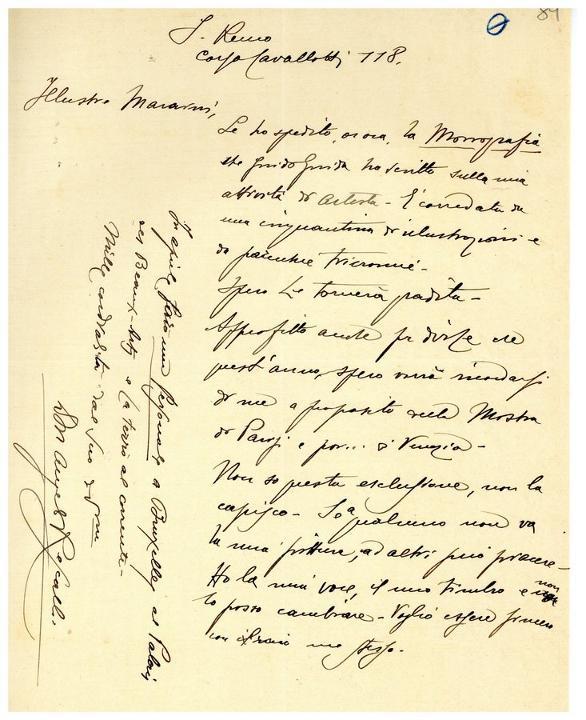 84
S. Remo
Corso Cavallotti 118.
Illustre Maraini,
Le ho spedito, ora, la Monografia
che Guido Guida ha scritto sulla mia
attività di artista - È corredata da
una cinquantina di illustrazioni e
da parecchie tricromie -
Spero Le tornerà gradita -
Approfitto anche per dirle che
quest'anno, spero vorrà ricordarsi
di me a proposito della Mostra
di Parigi e poi... di Venezia -
Non so questa esclusione, non la
capisco - Se a qualcuno non va
la mia pittura, ad altri può piacere -
Ho la mia voce, il mio timbro e non
lo posso cambiare - Voglio essere sincero
con me stesso.
In aprile farò una Personale a Bruxelles al Palais
des Beaux-Arts e La terrò al corrente -
Mille cordialità dal Suo